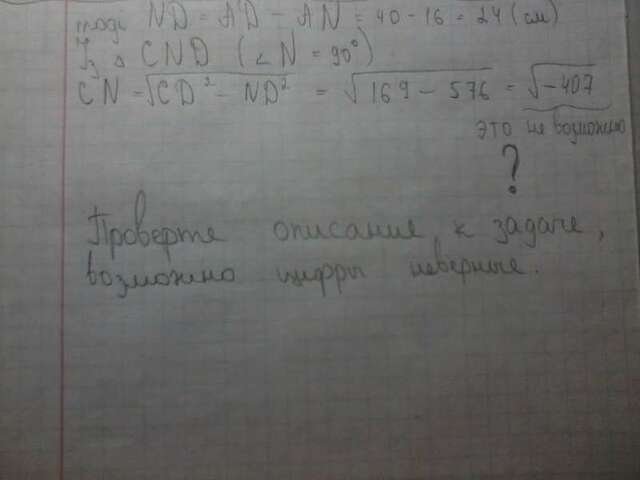 тоді ND = AD - AN = 40 - 16 = 24 (см)
Із △ CND (∠N = 90°)
CN = √CD² - ND² = √169 - 576 = √-407
это не возможно
?
Проверте описание к задаче,
возможно цифры неверные.